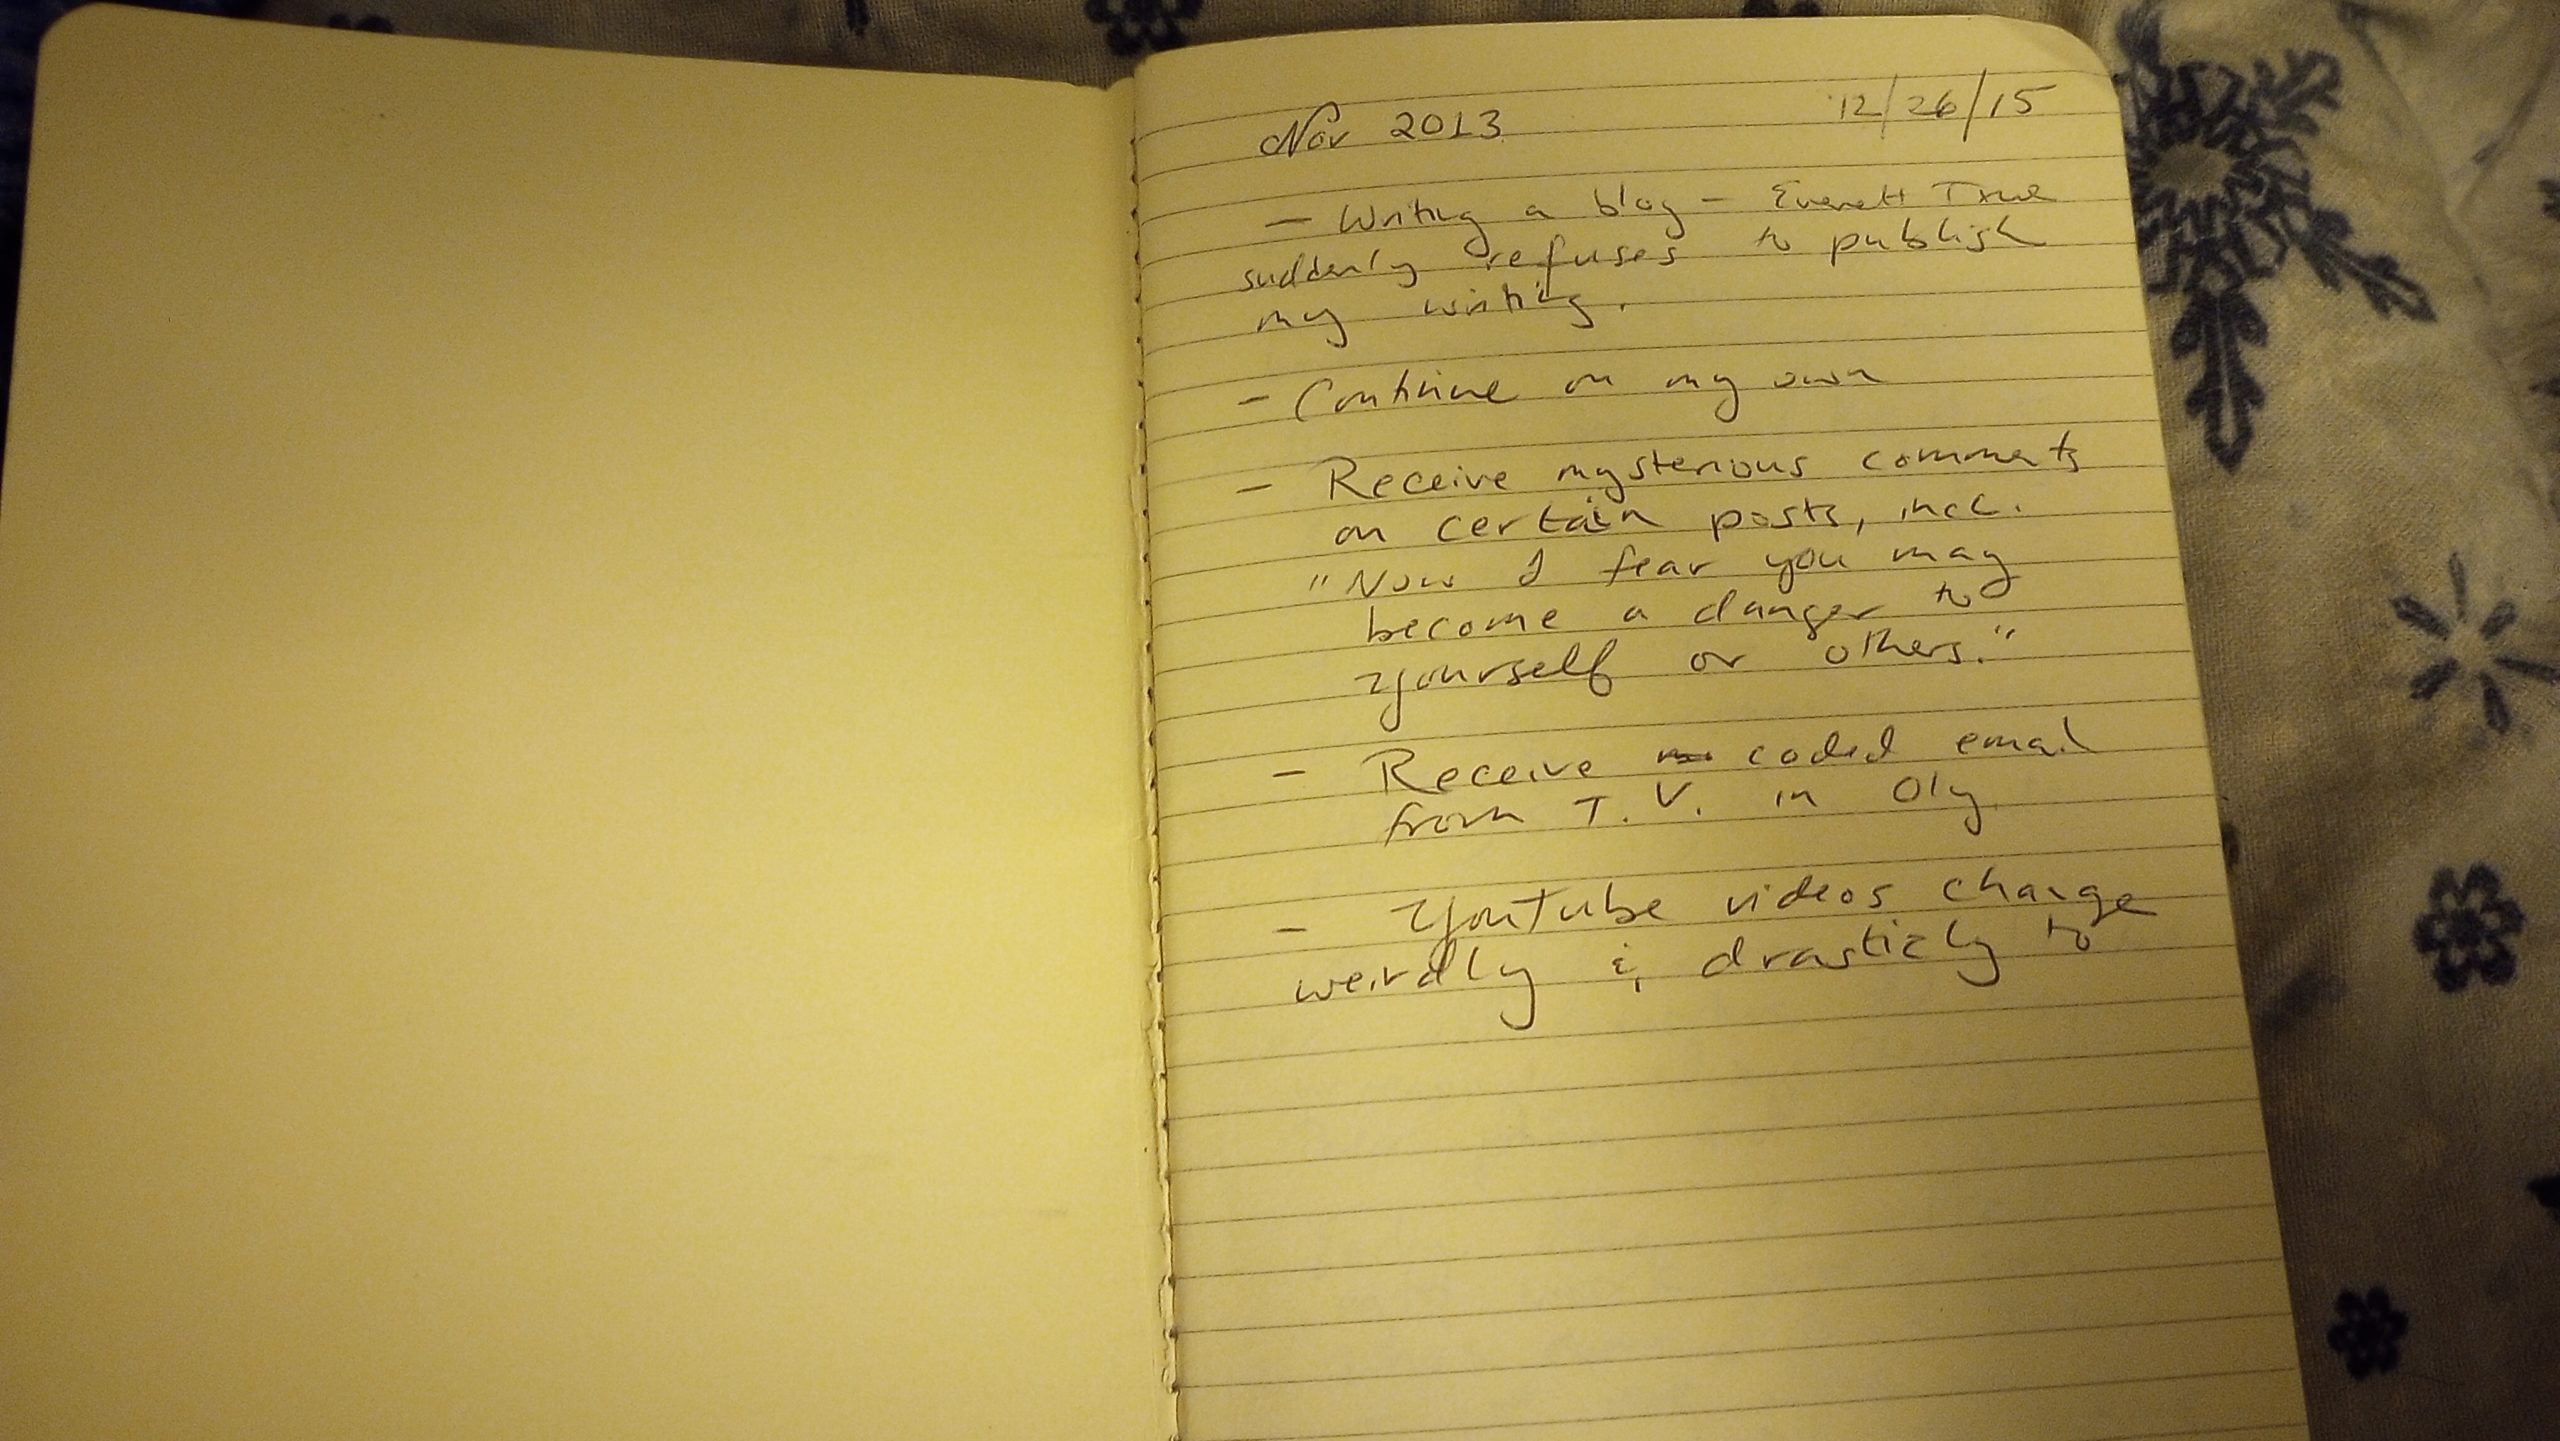 Nov 2013 12/26/15
- Writing a blog - Everett True
suddenly refuses to publish
my writing.
- Continue on my own
- Receive mysterious comments
on certain posts, incl.
"Now I fear you may
become a danger to
yourself or others."
- Receive coded email
from T.V. in Oly.
- Youtube videos change
weirdly & drasticly to